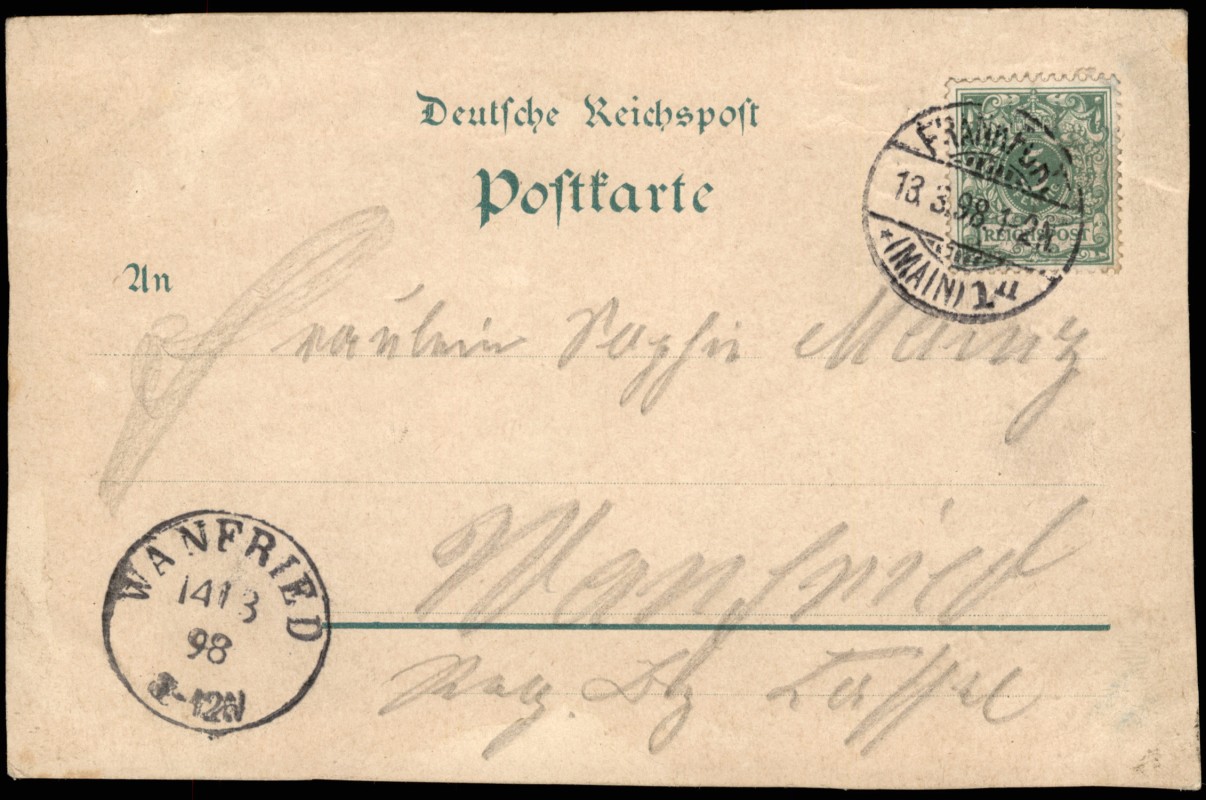 Deutsche Reichspost
Postkarte
FRANKFURT
13.3.98.1-2N
* (MAIN) 1
REICHSPOST
An
Fräulein Sophie
Wanfried
Reg. Bz Cassel
WANFRIED
14 3
98
-12N